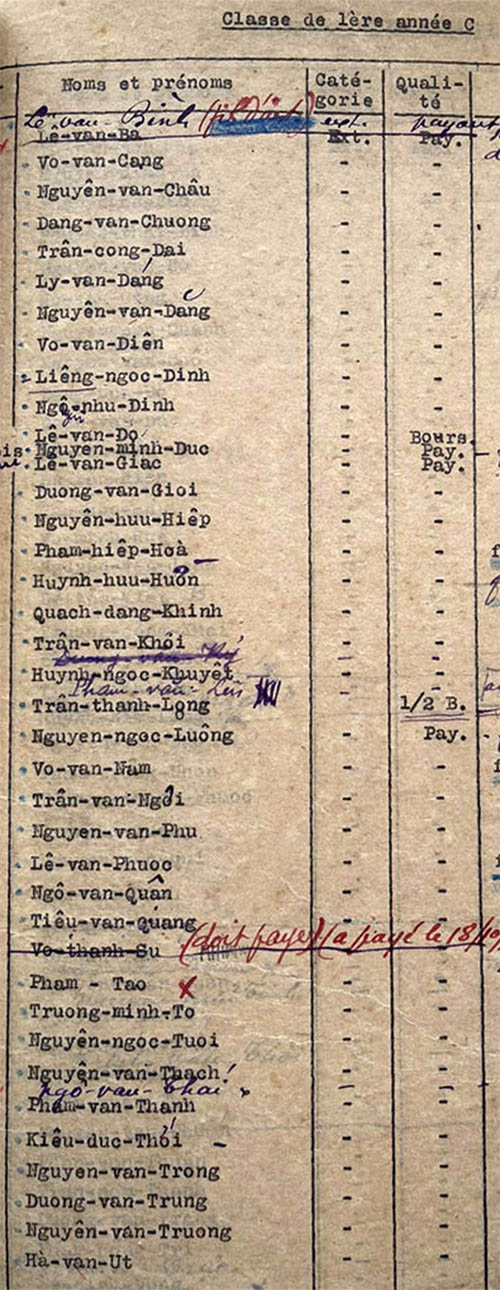 Classe de 1ère année C
Noms et prénoms Caté-gorie Quali-té
Lê-van-Bình ext. payant
Lê-van-Ba Ext. Pay.
Vo-van-Cang - -
Nguyên-van-Châu - -
Dang-van-Chuong - -
Trân-cong-Dai - -
Ly-van-Dáng - -
Nguyên-van-Dăng - -
Vo-van-Diên - -
Liêng-ngoc-Dinh - -
Ngô-nhu-Dinh - -
Lê-van-Do - Bours.
Nguyen-minh-Duc - Pay.
Lê-van-Giac - Pay.
Duong-van-Gioi - -
Nguyên-huu-Hiêp - -
Pham-hiêp-Hoà - -
Huynh-huu-Huôn - -
Quach-dang-Khinh - -
Trân-van-Khôi - -
Duong-van-Ký - -
Huynh-ngoc-Khuyêt - -
Pham-van-
Trân-thanh-Long - 1/2 B.
Nguyen-ngoc-Luông - Pay.
Vo-van-Nam - -
Trân-van-Ngơi - -
Nguyen-van-Phu - -
Lê-van-Phuoc - -
Ngô-van-Quân - -
Tiêu-van-Quang - -
Vo-thanh-Su (doit payer) (a payé le 18/10
Pham - Tao x - -
Truong-minh-To - -
Nguyên-ngoc-Tuoi - -
Nguyên-van-Thach - -
Ngô-van-Thai - -
Pham-van-Thanh - -
Kiêu-duc-Thôí - - -
Nguyen-van-Trong - -
Duong-van-Trung - -
Nguyên-van-Truong - -
Hà-van-Ut - -